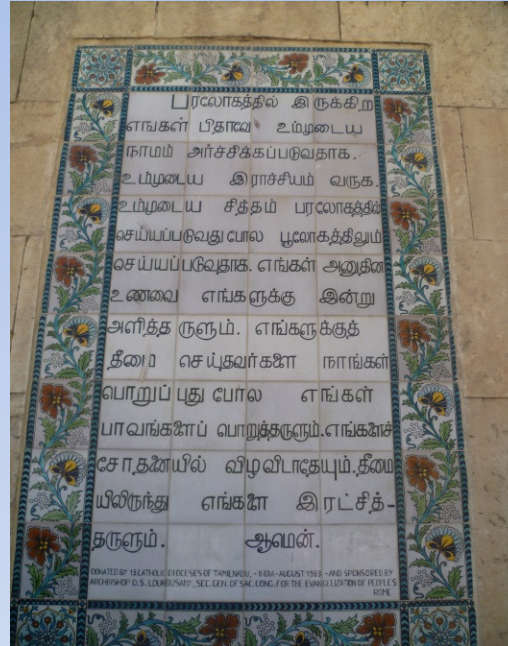 பரலோகத்தில் இருக்கிற
எங்கள் பிதாவே உம்முடைய
நாமம் அர்ச்சிக்கப்படுவதாக.
உம்முடைய இராச்சியம் வருக.
உம்முடைய சித்தம் பரலோகத்தில்
செய்யப்படுவதுபோல பூலோகத்திலும்
செய்யப்படுவதாக. எங்கள் அனுதின
உணவை எங்களுக்கு இன்று
அளித்தருளும். எங்களுக்குத்
தீமை செய்தவர்களை நாங்கள்
பொறுப்பது போல எங்கள்
பாவங்களைப் பொறுத்தருளும். எங்களைச்
சோதனையில் விழவிடாதேயும். தீமை
யிலிருந்து எங்களை இரட்சித்-
தருளும். ஆமென்.
DONATED BY 13 CATHOLIC DIOCESES OF TAMILNADU, - INDIA - AUGUST 1983 - AND SPONSORED BY
ARCHBISHOP D.S. LOURDUSAMY, SEC. GEN. OF SAC. CONG. FOR THE EVANGELIZATION OF PEOPLES
ROME